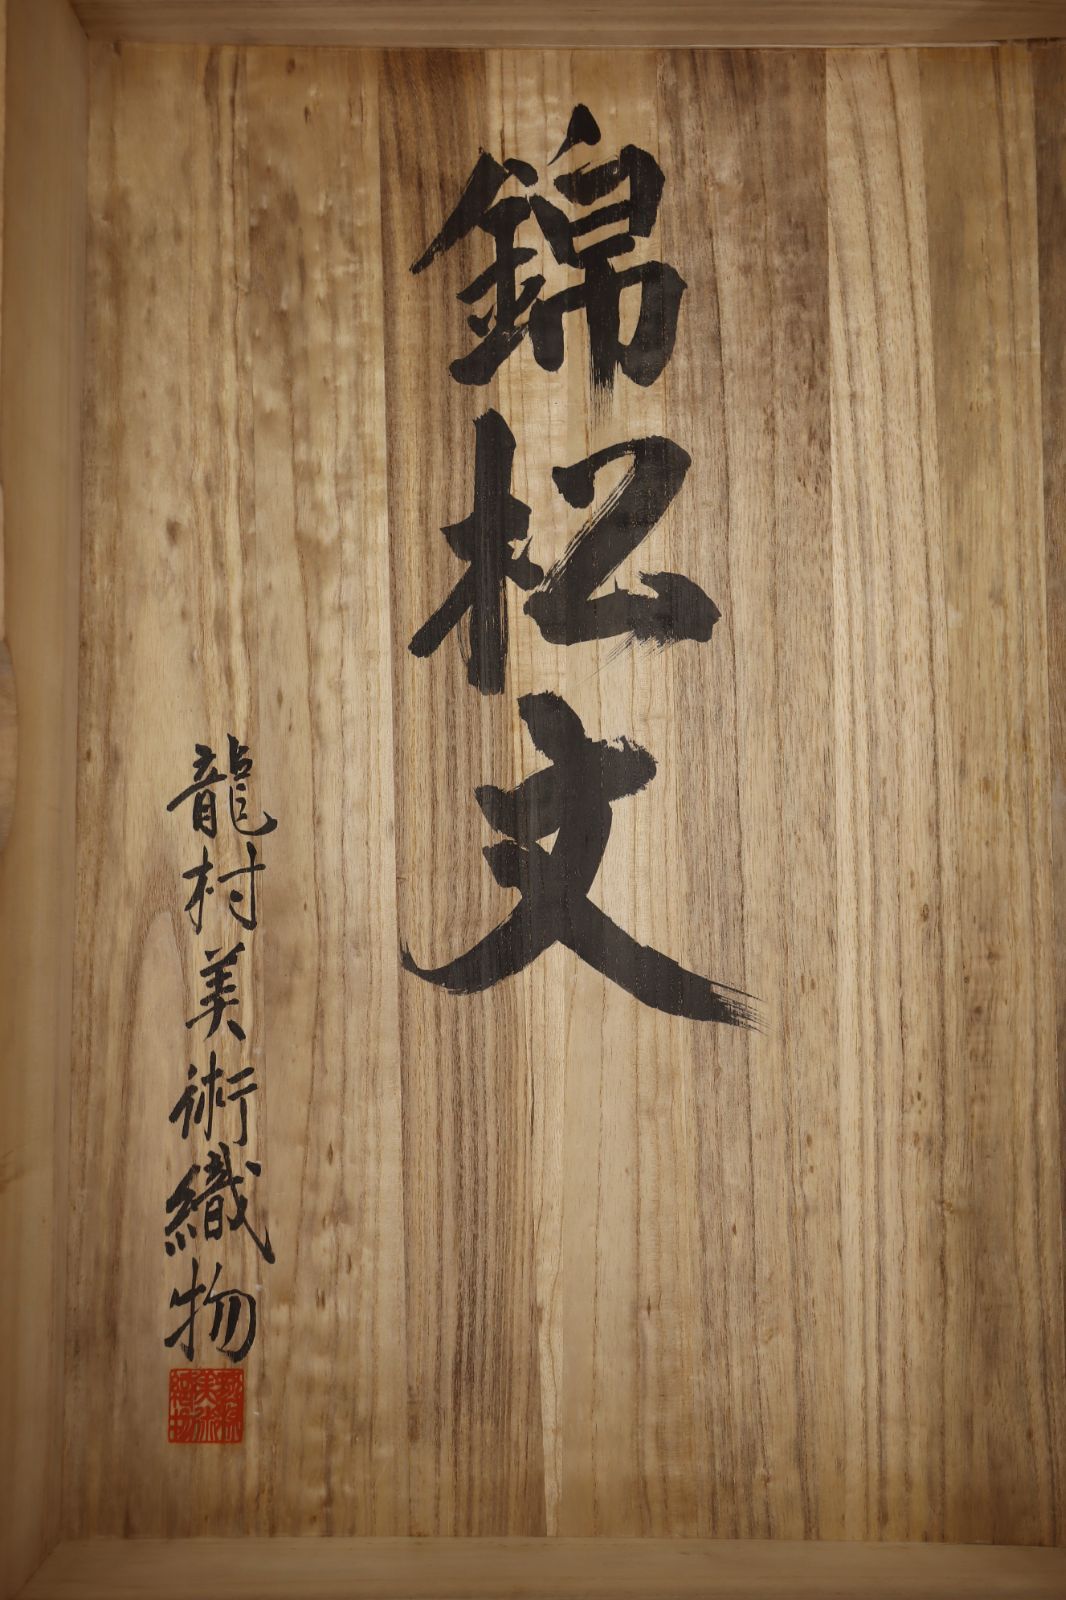 錦松文
龍村美術織物